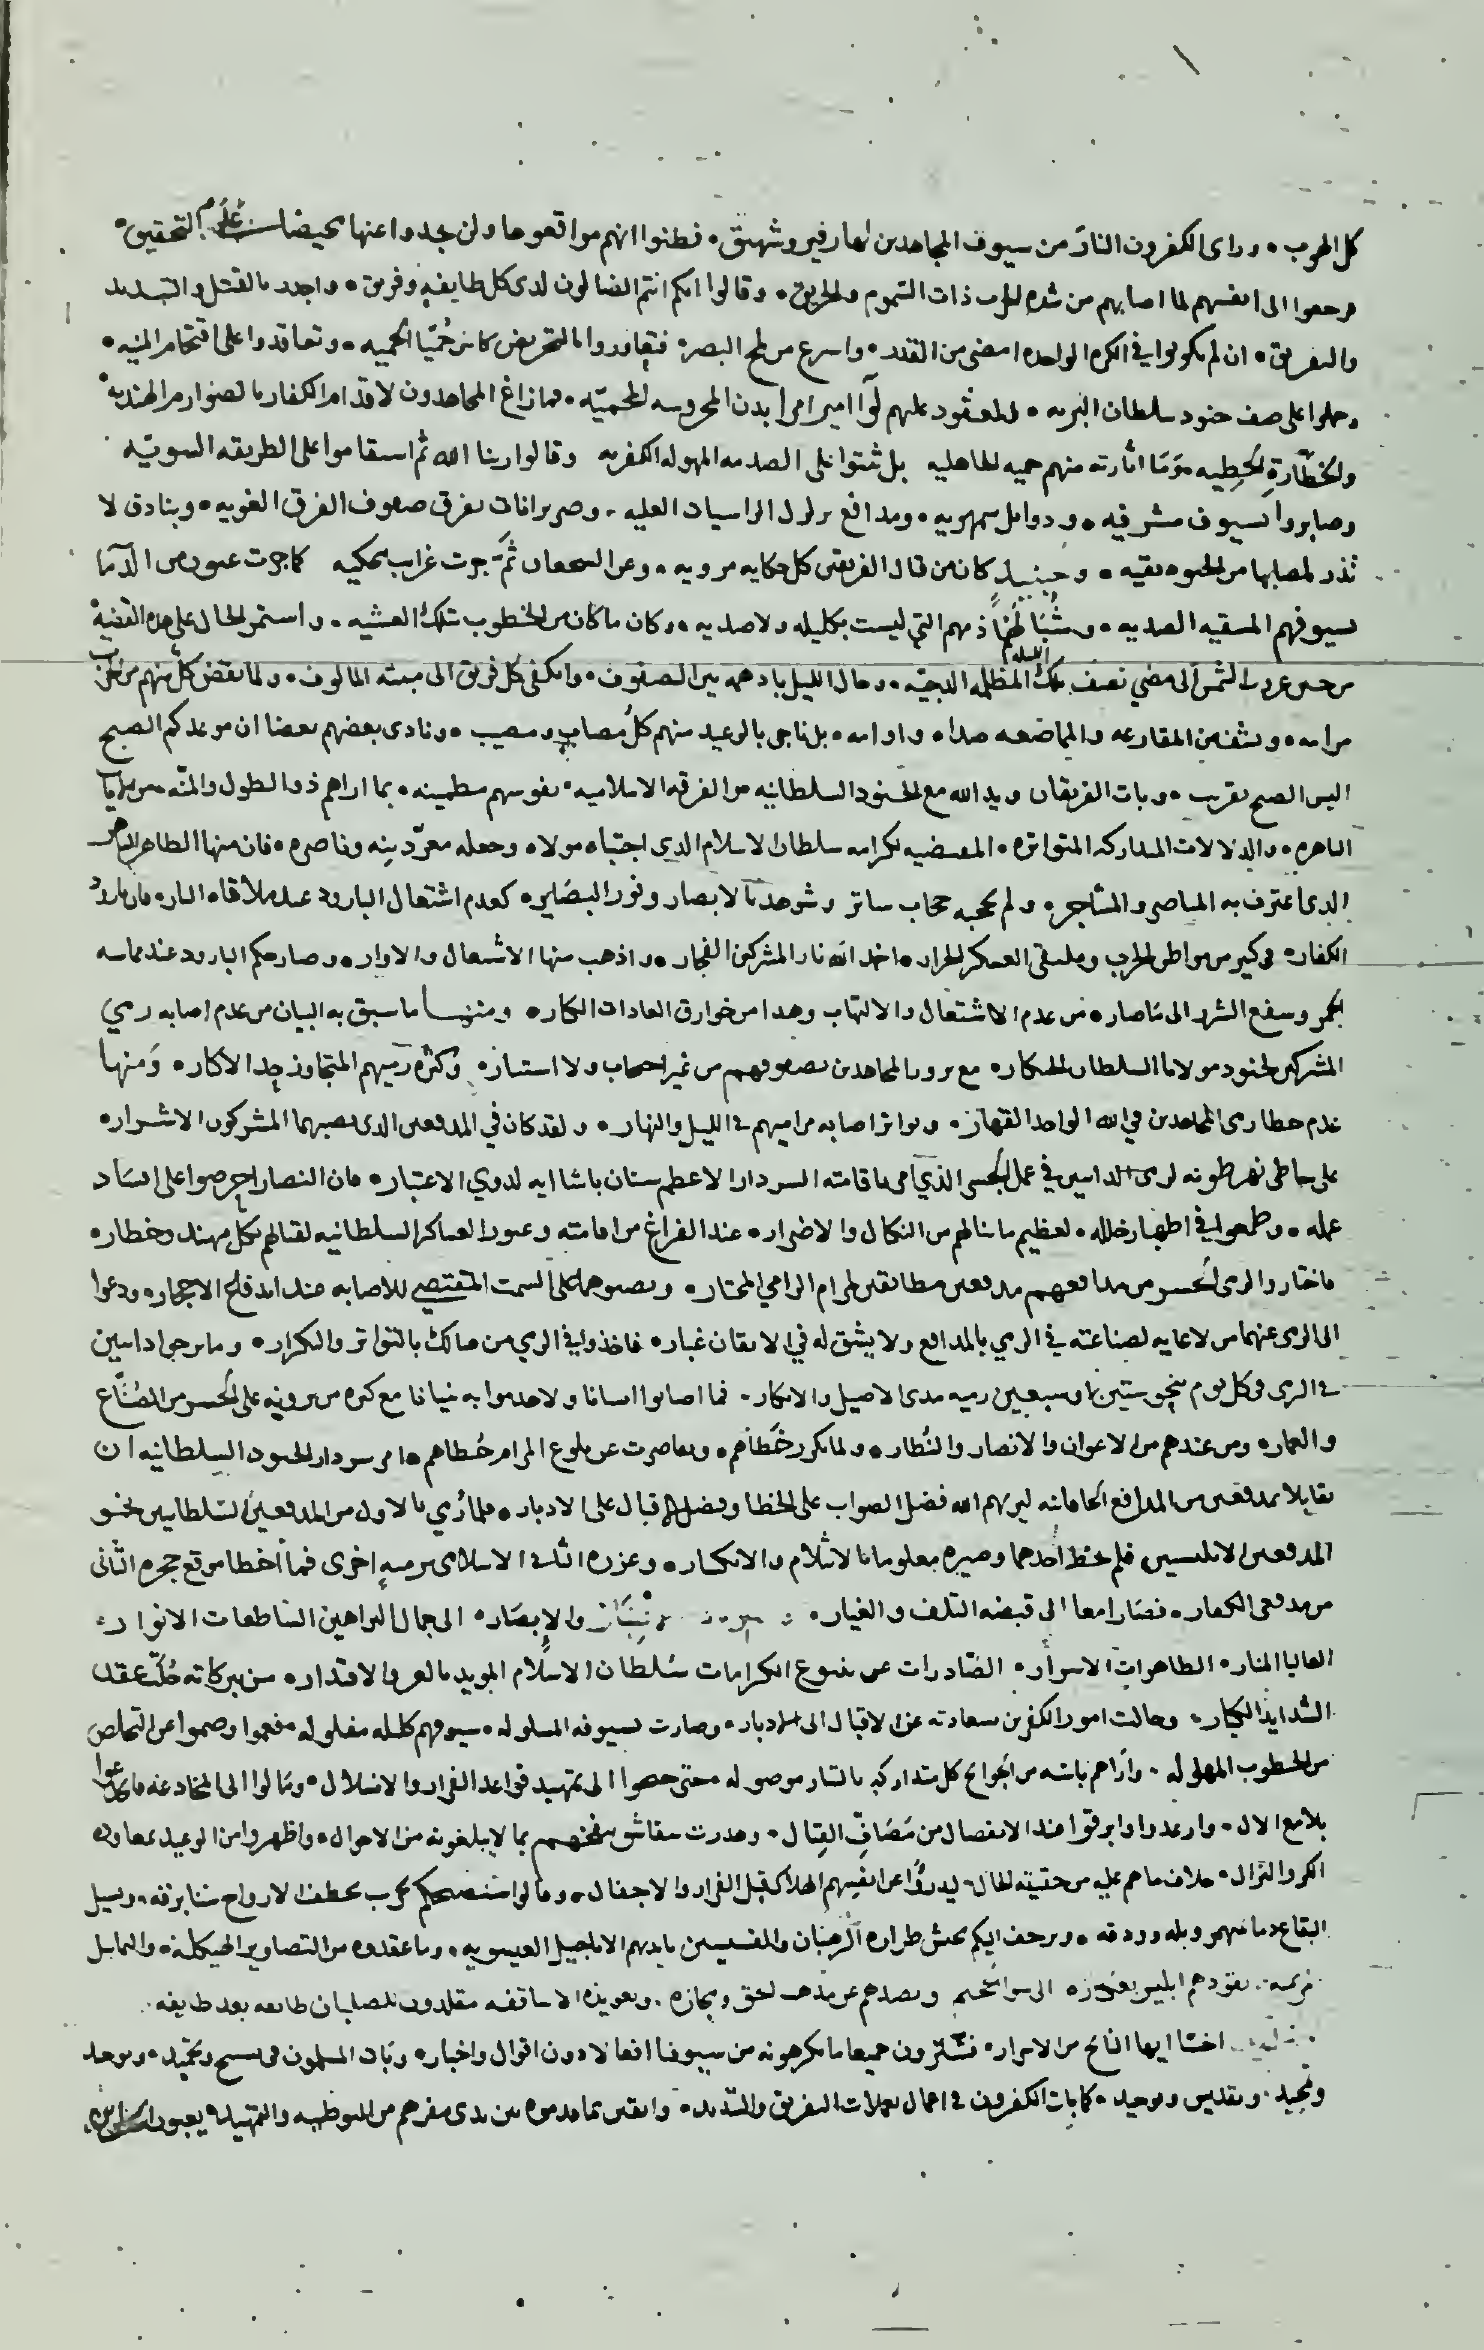 كل الهرب ٥ وراى الكفرون النار من سيوف المجاهدين لها زفير وشهيق ٥ فظنوا انهم مواقعوها ولن يجدوا عنها محيصا على التحقيق ٥
فرجعوا الى انفسهم لما اصابهم من شده الحرب ذات السموم والحريق ٥ وقالوا انكم انتم الضالون لدى كل طايفه وفريق ٥ واجدر بالقتل والتبديد
والتفريق ٥ ان لم تكونوا في الكره الواحده امضى من القدر ٥ واسرع من لمح البصر ٥ فتعاوروا بالتحريض كاس حُميّا الحميه ٥ وتعاقدوا على اقتحام المنيه ٥
وحملوا على صف جنود سلطان البريه ٥ المعقود عليهم لوآ امير امرا بدن المحروسه المحميّه ٥ فما زاغ المجاهدون لاقدام الكفار بالصوارم الهنديه ٥
والخطّارةِ الخطيه ومَا اثارته منهم حميه الجاهليه بل ثبتوا على الصدمه المهوله الكفريه وقالوا ربنا الله ثم استقاموا على الطريقه السويّه
وصابروا بسيوف مشرفيه ٥ وذوابل سمهريه ٥ ومدافع تزلزل الراسيات العليه ٥ وضربزانات تفرق صفوف الفرق الغويه ٥ وبنادق لا
تذر لمصابها من الحيوه بقيه ٥ وحينيذ كان من قتال الفريقين كل حكايه مرويه ٥ وعن الشجعان ثَمّ جرت غرايب محكيه كما جرت عيون من الدمآ
بسيوفهم المسقيه الصديه ٥ وشُبَا لهَاذمهم التي ليست بكليله ولا صديه ٥ وكان ما كان من الخطوب بتلك العشيه ٥ واستمر الحال على هذه القضيه
من حين غروب الشمس الى مضي نصف تلك الليله المظلمه الدجيّه ٥ وحال الليل بادهمه بين الصفوف ٥ وانكفى كل فريق الى مبيته المالوف ٥ ولما نقض كلٌ منهم من حرب
مرامه ٥ وشفى من المقارعه والمماصعه صداه واوامه ٥ بل ناجى بالوعيد منهم كلُ مصابٍ ومصيب ٥ ونادى بعضهم بعضا ان موعدكم الصبح
اليس الصبح بقريب ٥ وبات الفريقان ويد الله مع الجنود السلطانيه من الفرقه الاسلاميه ٥ نفوسهم مطمينه ٥ بما اراهم ذو الطول والمنّه من الايات
الباهره ٥ والدلالات المباركه المتواتره ٥ المفضيه بكرامه سلطان الاسلام الذي اجتباه مولاه وجعله معزّ دينه وناصره ٥ فان منها الظاهر الباهر
الذي اعترف به المناصر والمشاجر ٥ ولم يحجبه حجاب ساتر وشوهد بالابصار ونور البصاير ٥ كعدم اشتعال البارود عند ملاقاه النار ٥ فان بارود
الكفار ٥ في كثير من مواطن الحرب وملتقى العسكر الجرار ٥ اخمد الله نار المشركين الفجار ٥ واذهب منها الاشتعال والاوار ٥ وصار حكم البارود عند مماسه
الجمر وسفع الشرر الى ما صار ٥ من عدم الاشتعال والالتهاب وهذا من خوارق العادات الكبار ٥ ومنها ما سبق به البيان من عدم اصابه رمي
المشركين لجنود مولانا السلطان الخنكار ٥ مع بروز المجاهدين بصفوفهم من غير احتجاب ولا استتار ٥ وكثره رميهم المتجاوز حد الاكثار ٥ ومنها
عدم خطا رمي المجاهدين في الله الواحد القهار ٥ وتواتر اصابه مراميهم في الليل والنهار ٥ ولقد كان في المدفعين الذي نصبهما المشركون الاشرار ٥
على شاطى نهر حلق الوادي لرمى الدايبين في عمل الجسر الذي امر باقامته السردار الاعظم سنان باشا ايه لذوي الاعتبار ٥ فان النصارا حرصوا على افساد
عمله ٥ وطمعوا في اظهار خلله ٥ لعظيم ما نالهم من النكال والاضرار ٥ عند الفراغ من اقامته وعبور العساكر السلطانيه لقتالهم بكل مهند وخطار ٥
فاختاروا لرمى الجسر من مدافعهم مدفعين مطابقين لمرام الرامي المختار ٥ ونصبوهما على السمت المقتضي للاصابه عند اندفاع الاحجار ٥ ودعوا
الى الرمي عنهما من لا غايه لصناعته في الرمي بالمدافع ولا يشق له في الاتقان غبار ٥ فاخذوا في الرمي من هنالك بالتواتر والتكرار ٥ وما برحوا دايبين
في الرمى في كل يوم بنحو ستين او سبعين رميه مدى الاصيل والابكار ٥ فما اصابوا انسانا ولا هدموا به بنيانا مع كثره من يرونه على الجسر من الصُنّاع
والعمار ٥ ومن عندهم من الاعوان والانصار والنُظار ٥ ولما تكرر خَطاهم ٥ وتقاصرت عن بلوغ المرام خُطاهم ٥ امر سردار الجنود السلطانيه ان
يقابلا بمدفعين من المدافع الخاقانيه ليريهم الله فضل الصواب على الخطا وفضل الاقبال على الادبار ٥ فلما رُمي بالاول من المدفعين السلطانيين نحو
المدفعين الابليسيين فلم يخط احدهما وصيره معلوما بالانثلام والانكسار ٥ وعززه الثاني الاسلامى برميه اخرى فما اخطا موقع حجره الثانى
من مدفعى الكفار ٥ فصارا معا الى قبضه التلف والغيار ٥ والابصار ٥ الى جمال البراهين الساطعات الانوار ٥
العاليا المنار ٥ الظاهرات الاسرار ٥ الصّادرات عن ينبوع الكرامات سُلطان الاسلام المويد بالعز والاقتدار ٥ من ببركاته حُلّت عقد
الشدايد الكبار ٥ وحالت امور الكفرين بسعادته عن الاقبال الى الادبار ٥ وصارت بسيوفه المسلوله ٥ سيوفهم كليله مفلوله فعموا وصموا عن التخلص
من الخطوب المهوله ٥ واراهم باسه من الجوانح كل متداركه بالتبار موصوله ٥ حتى جنحوا الى تمهيد قواعد الفرار والانسلال ٥ ومالوا الى المخادعه فانخدعوا
بلامع الال ٥ وارعدوا وابرقوا عند الانفصال من مَصَافّ القِتال ٥ وهدرت شقاشق شيخهم بما لا يبلغونه من الاحوال ٥ واظهروا من الوعيد بمعاوده
الكر والنزال ٥ خلاف ما هم عليه من حقيقه الحال ٥ ليدرؤُا عن انفسهم الهلاك قبل الفرار والاجفال ٥ وقالوا سنصبحكم بحرب تخطف الارواح سنا برقه ٥ ويسيل
البقاع دما منهمر وبله وودقه ٥ ويزحف اليكم بجيش طرازه الرهبان والقسيسين بايديهم الاناجيل العيسويه ٥ وما عقدوه من التصاوير الهيكليه ٥ والتماثيل
المريميه ٥ يقودهم ابليس بغروره الى سوا الجحيم ويصدهم عن مذهب الحق ومجازه ٥ وتعويذه الاساقفه مقلدون للصلبان طايفه بعد طايفه ٥
اخسا ايها النابح من الاسرار ٥ فسترون جميعا ما تكرهونه من سيوفنا افعالا دون اقوال واخبار ٥ وبات المسلمون في تسبيح وتحميد ٥ وتوحيد
وتمجيد ٥ وتقديس وتوحيد ٥ كما بات الكفرون في اعمال يعملات التفريق والتشديد ٥ وايقن بما قدموه بين يدي مفرهم من التوطيه والتمهيد ٥ يعبون